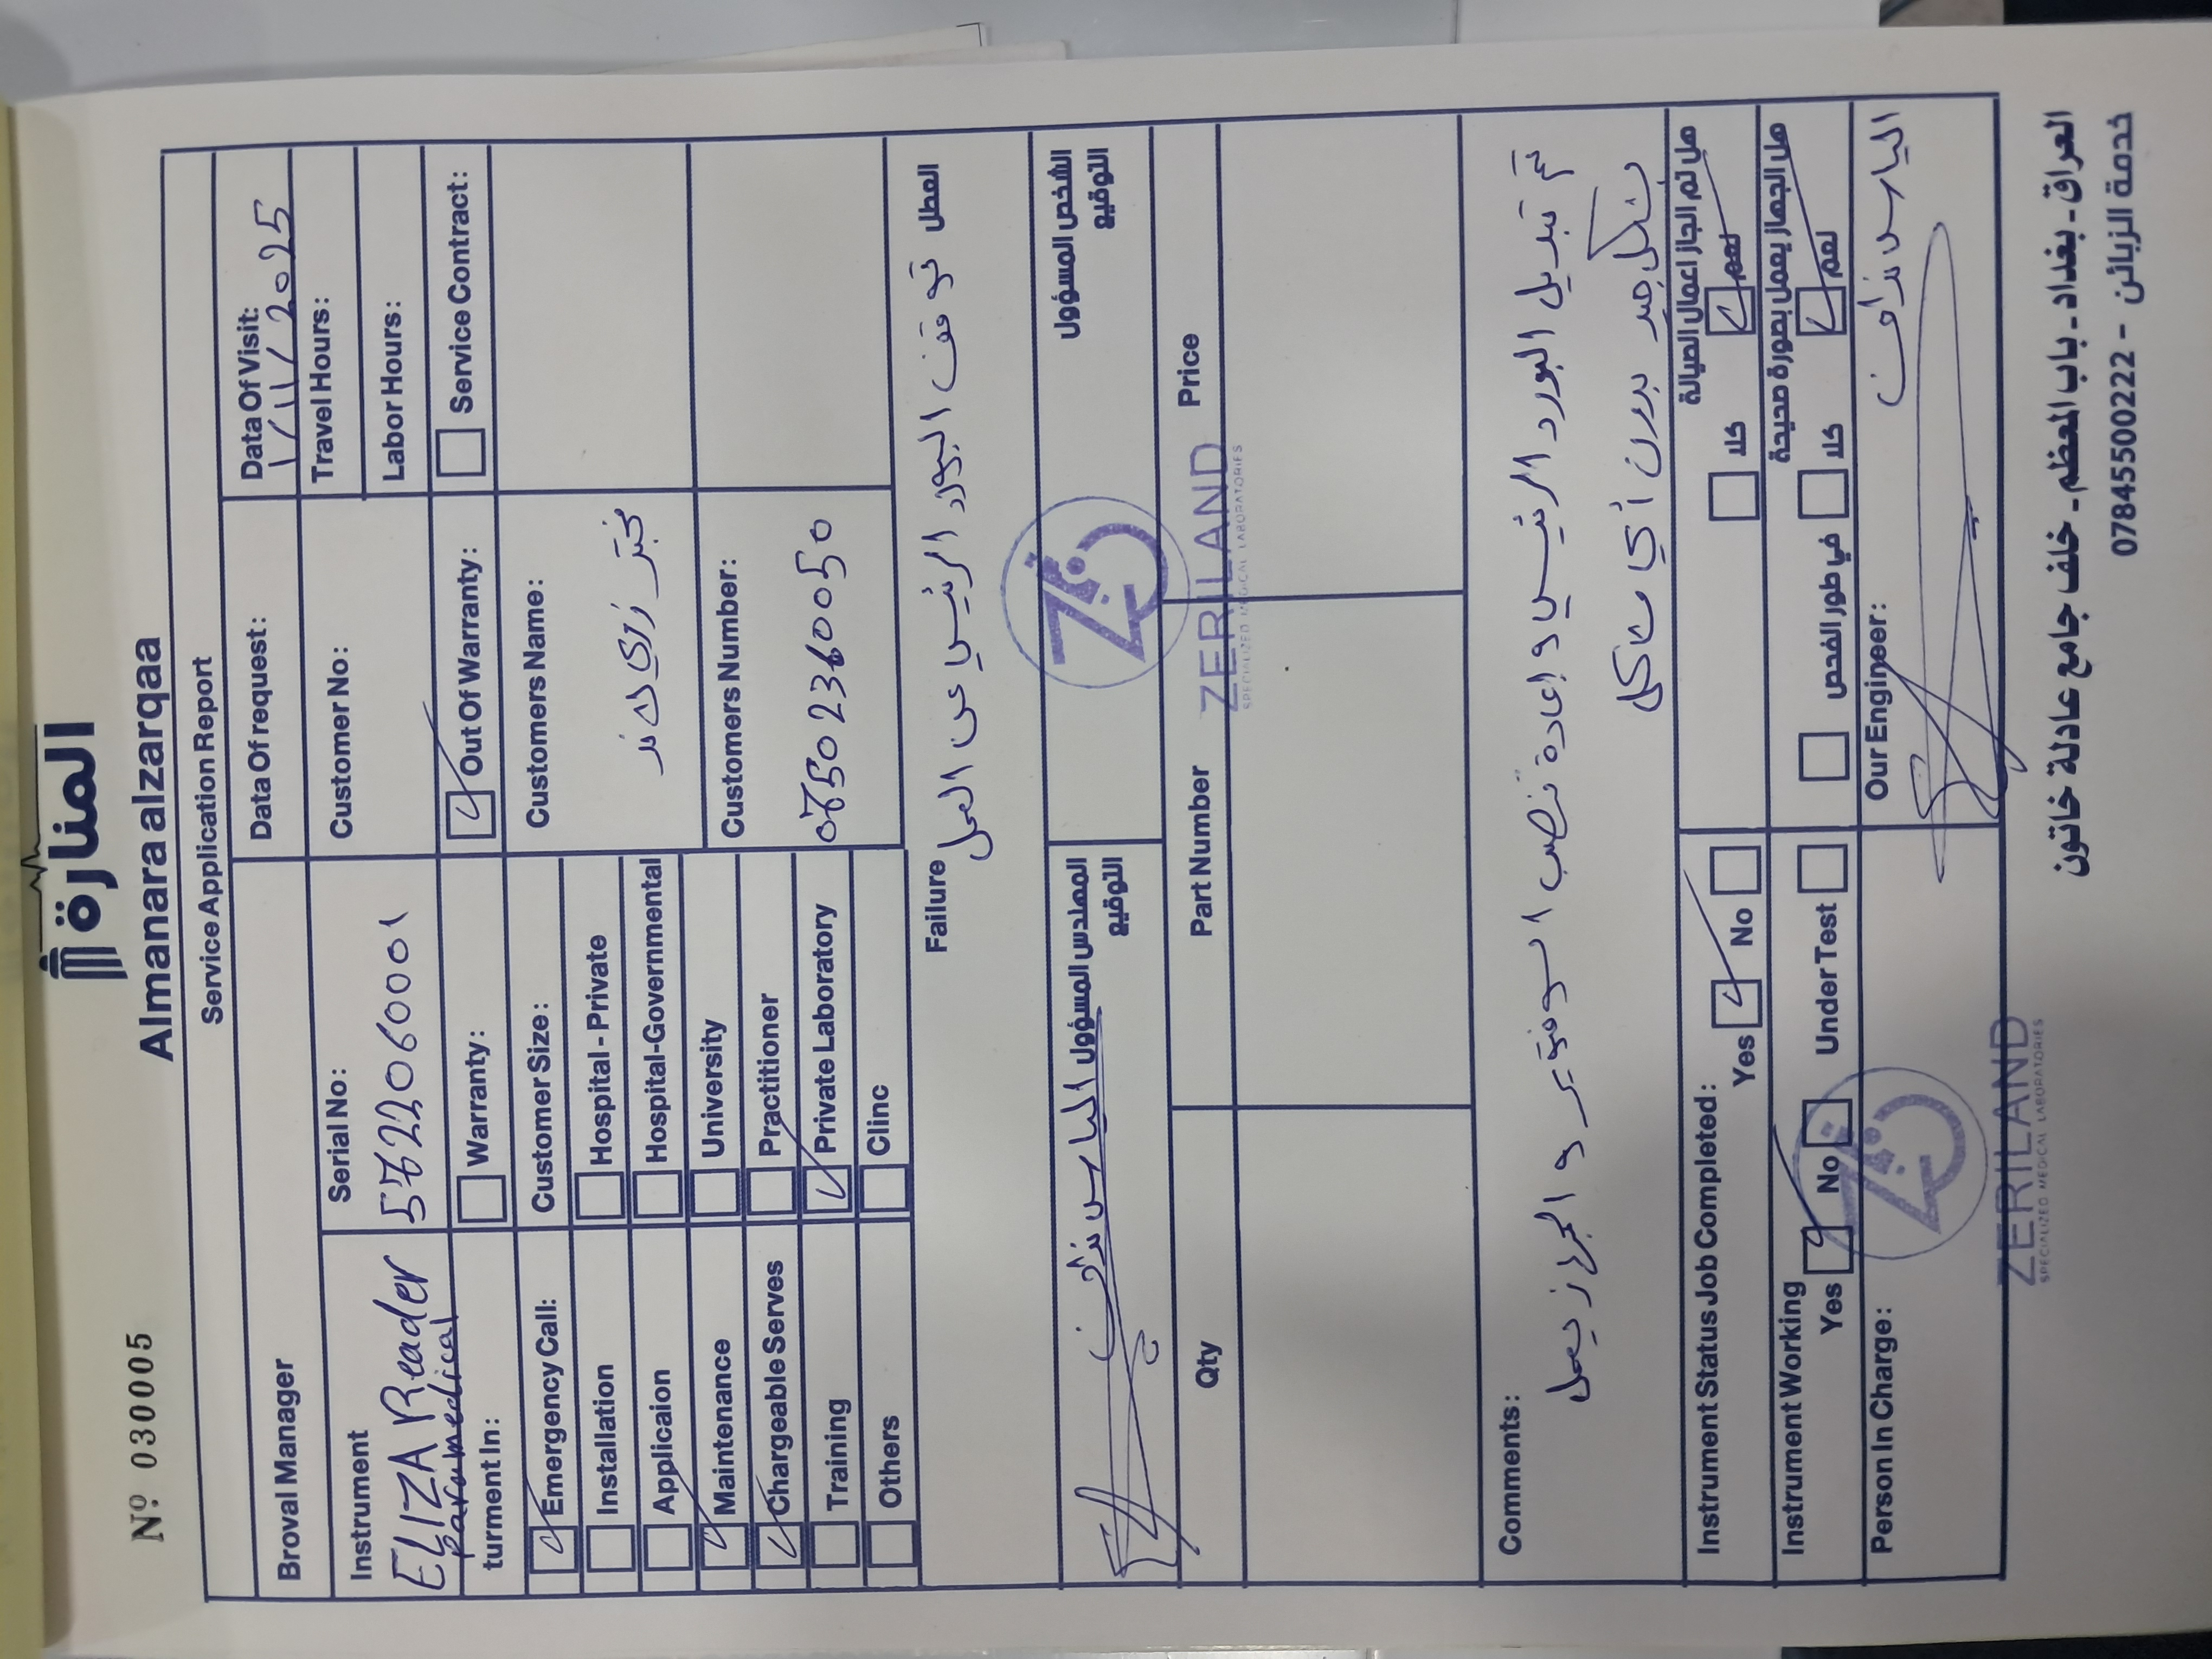 Nº 030005
المنارة
Almanara alzarqaa
Service Application Report
Broval Manager
Data Of request:
Data Of Visit:
1/11/2025
Instrument
ELIZA Reader
paramedical
turment In:
Serial No:
5822060001
Customer No:
Travel Hours:
Labor Hours:
Warranty:
Out Of Warranty:
Service Contract:
Emergency Call:
Installation
Applicaion
Maintenance
Chargeable Serves
Training
Others
Customer Size:
Hospital - Private
Hospital-Governmental
University
Practitioner
Private Laboratory
Clinc
Customers Name:
مختبر زيرى لاند
Customers Number:
07502360050
Failure
العطل
توقف البورد الرئيسي عن العمل
المهندس المسؤول
الياس
التوقيع
الشخص المسؤول
التوقيع
ZERILAND
SPECIALIZED MEDICAL LABORATORIES
Qty
Part Number
Price
Comments:
تم تبديل البورد الرئيسي و إعادة تنصيب السوفتوير و الجهاز يعمل
بشكل جيد بدون أي مشاكل
Instrument Status Job Completed :
Yes
No
هل تم انجاز اعمال الصيانة
نعم
كلا
Instrument Working
Yes
No
Under Test
هل الجهاز يعمل بصورة صحيحة
نعم
كلا
في طور الفحص
Person In Charge:
ZERILAND
SPECIALIZED MEDICAL LABORATORIES
Our Engineer:
الياس
العراق - بغداد - باب المعظم - خلف جامع عادلة خاتون
خدمة الزبائن - 07845500222